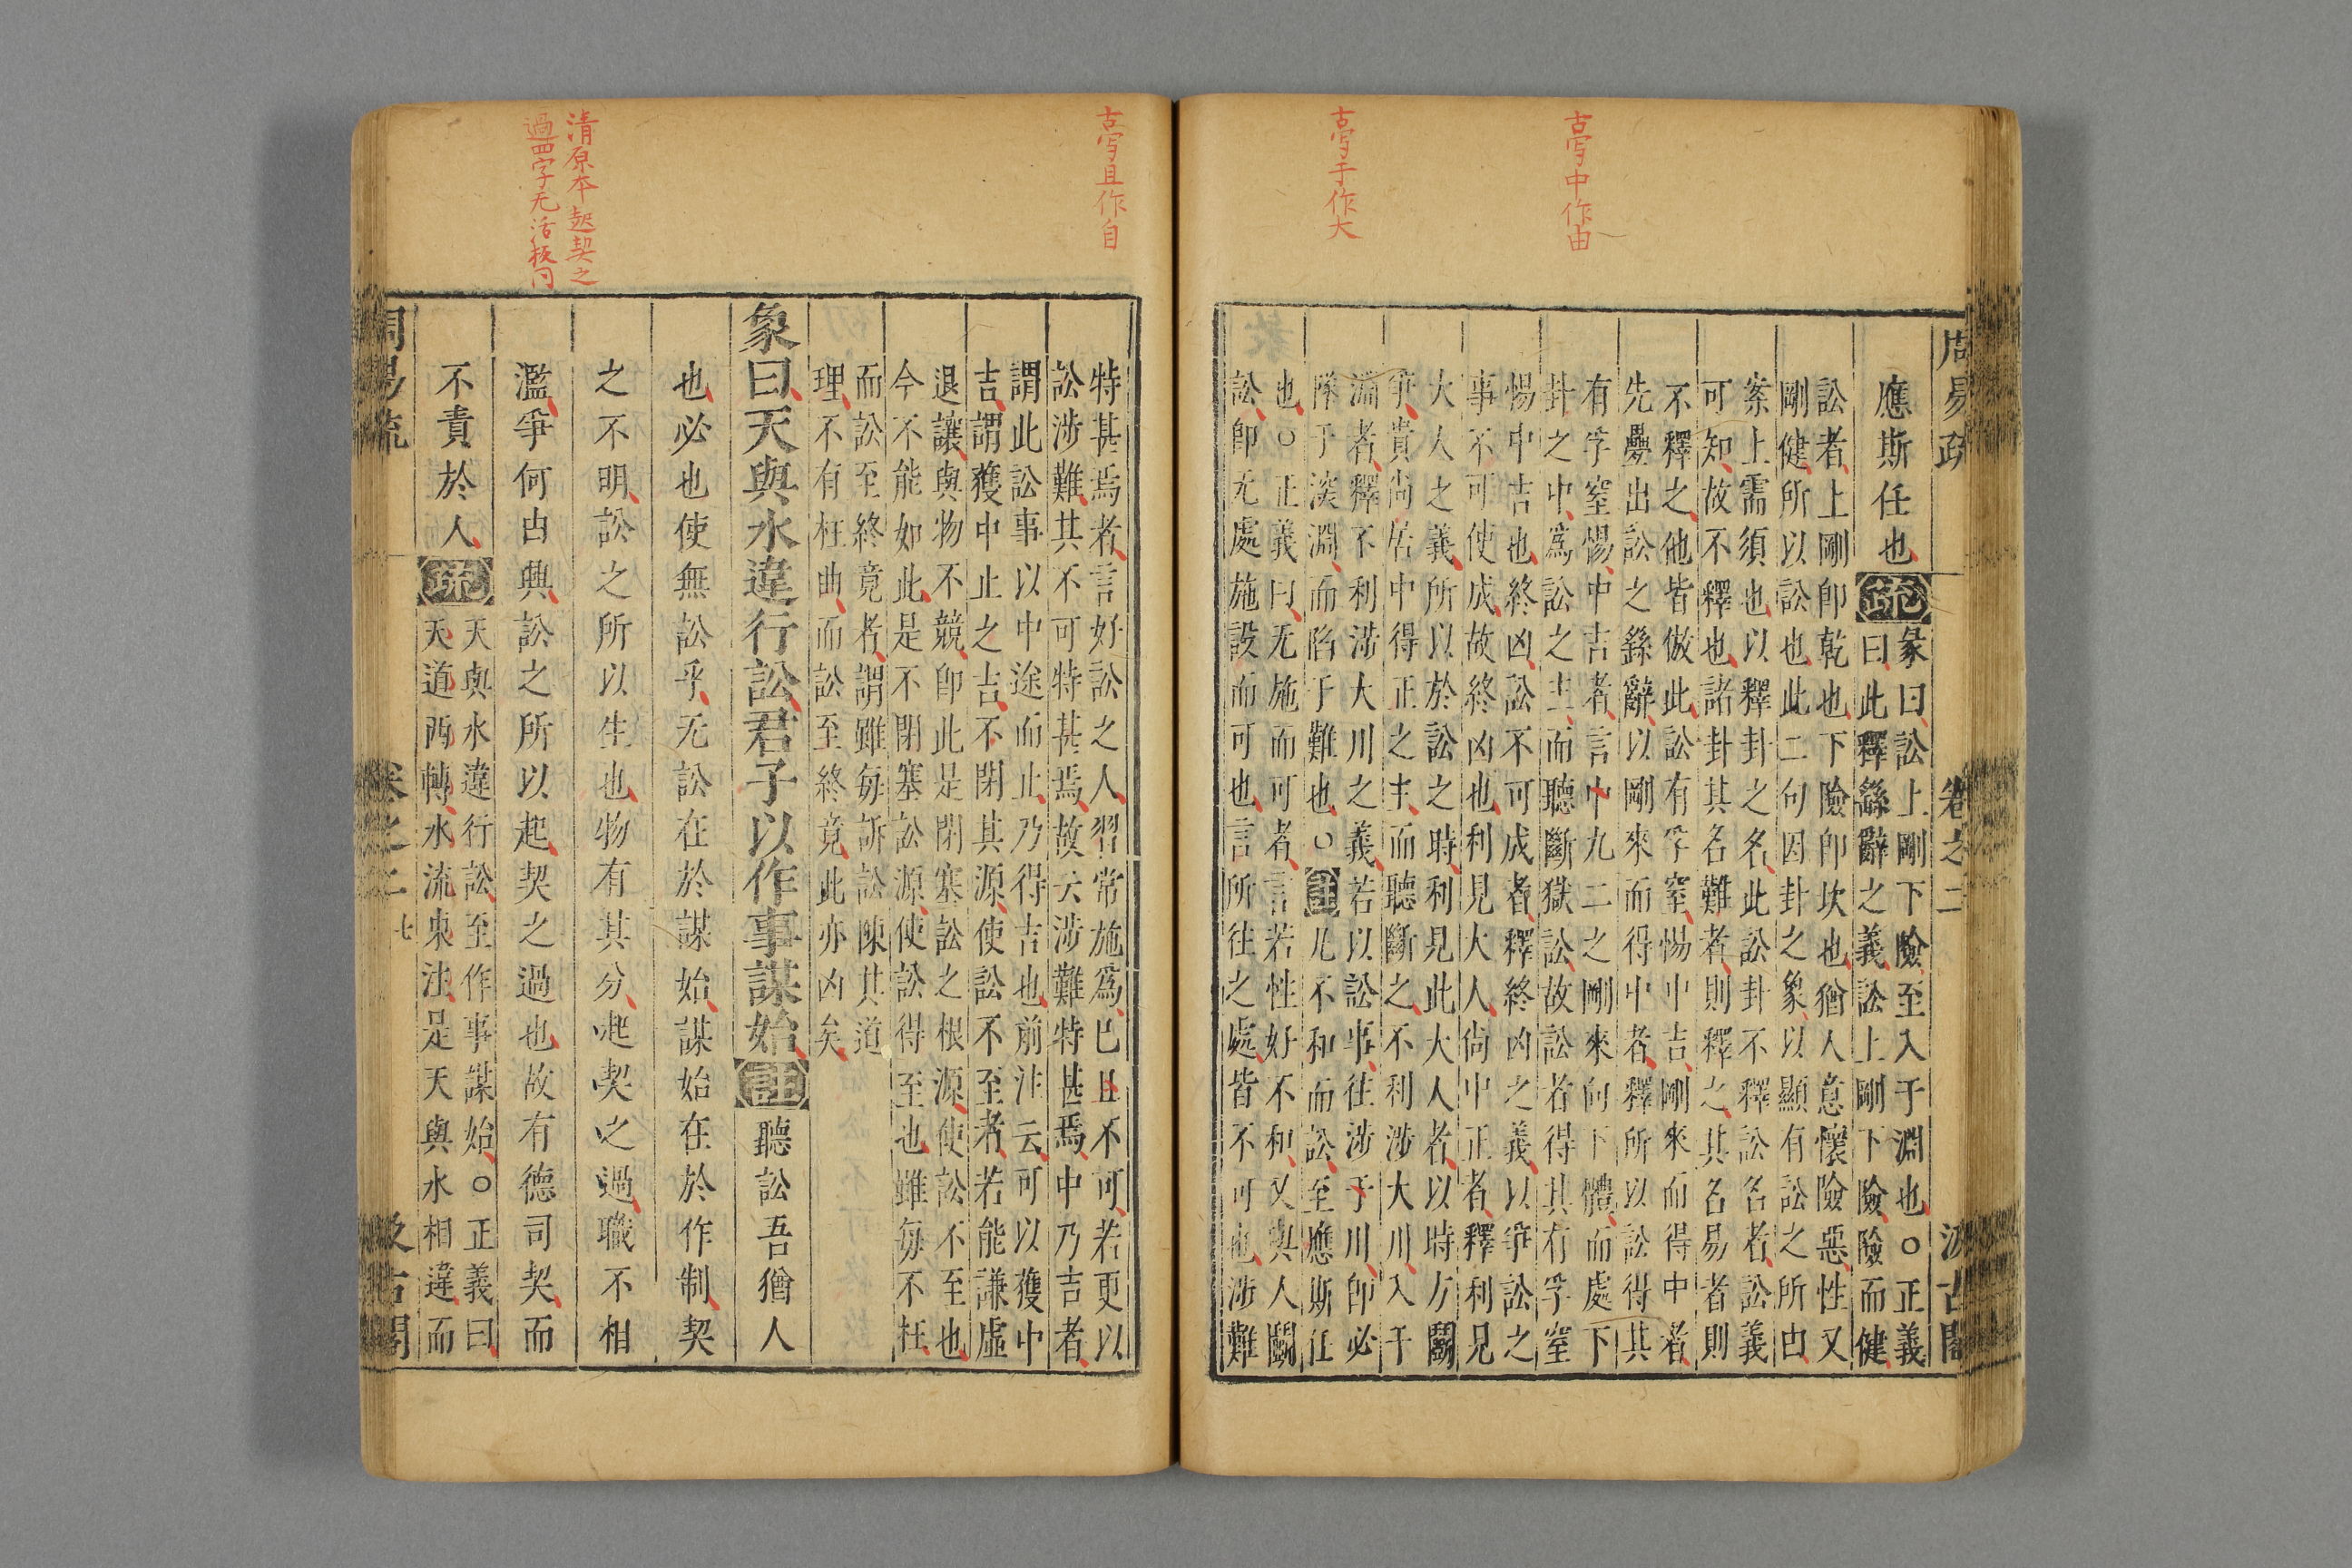 古写中作由
古写于作大
周易疏 卷之二 汲古閣
應斯任也疏
彖曰訟上剛下險至入于淵也○正義
曰此釋繇辭之義訟上剛下險險而健
訟者上剛卽乾也下險卽坎也猶人意懷險惡性又
剛健所以訟也此二句因卦之象以顯有訟之所由
案上需須也以釋卦之名此訟卦不釋訟名者訟義
可知故不釋也諸卦其名難者則釋之其名易者則
不釋之他皆倣此訟有孚窒惕中吉剛來而得中者
先疊出訟之繇辭以剛來而得中者釋所以訟得其
有孚窒惕中吉者言中九二之剛來向下體而處下
卦之中爲訟之主而聽斷獄訟故訟者得其有孚窒
惕中吉也終凶訟不可成者釋終凶之義以爭訟之
事不可使成故終凶也利見大人尙中正者釋利見
大人之義所以於訟之時利見此大人者以時方鬬
爭貴尙居中得正之主而聽斷之不利涉大川入于
淵者釋不利涉大川之義若以訟事往涉于川卽必
墜于深淵而陷于難也○註凡不和而訟至應斯任
也○正義曰无施而可者言若性好不和又與人鬬
訟卽无處施設而可也言所往之處皆不可也涉難
古写且作自
清原本起契之
過四字无活板同
特甚焉者言好訟之人習常施爲已且不可若更以
訟涉難其不可特甚焉故云涉難特甚焉中乃吉者
謂此訟事以中途而止乃得吉也前注云可以獲中
吉謂獲中止之吉不閉其源使訟不至者若能謙虛
退讓與物不競卽此是閉塞訟之根源使訟不至也
今不能如此是不閉塞訟源使訟得至也雖每不枉
而訟至終竟者謂雖每訴訟陳其道
理不有枉曲而訟至終竟此亦凶矣
象曰天與水違行訟君子以作事謀始註聽訟吾猶人
也必也使無訟乎无訟在於謀始謀始在於作制契
之不明訟之所以生也物有其分起契之過職不相
濫爭何由興訟之所以起契之過也故有德司契而
不責於人疏
天與水違行訟至作事謀始○正義曰
天道西轉水流東注是天與水相違而
周易疏 卷之二 七 汲古閣